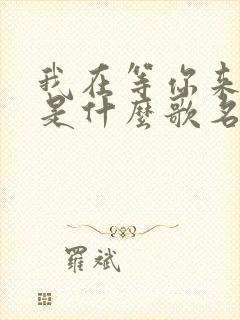 我在等你来
是什麼歌名
羅斌